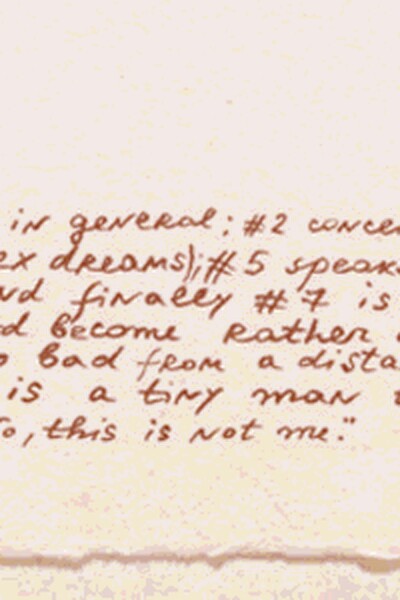 in general; #2 conce
ex dreams); #5 speak
nd finally #7 is
d become Rather
bad from a dista
is a tiny man
o, this is not me."